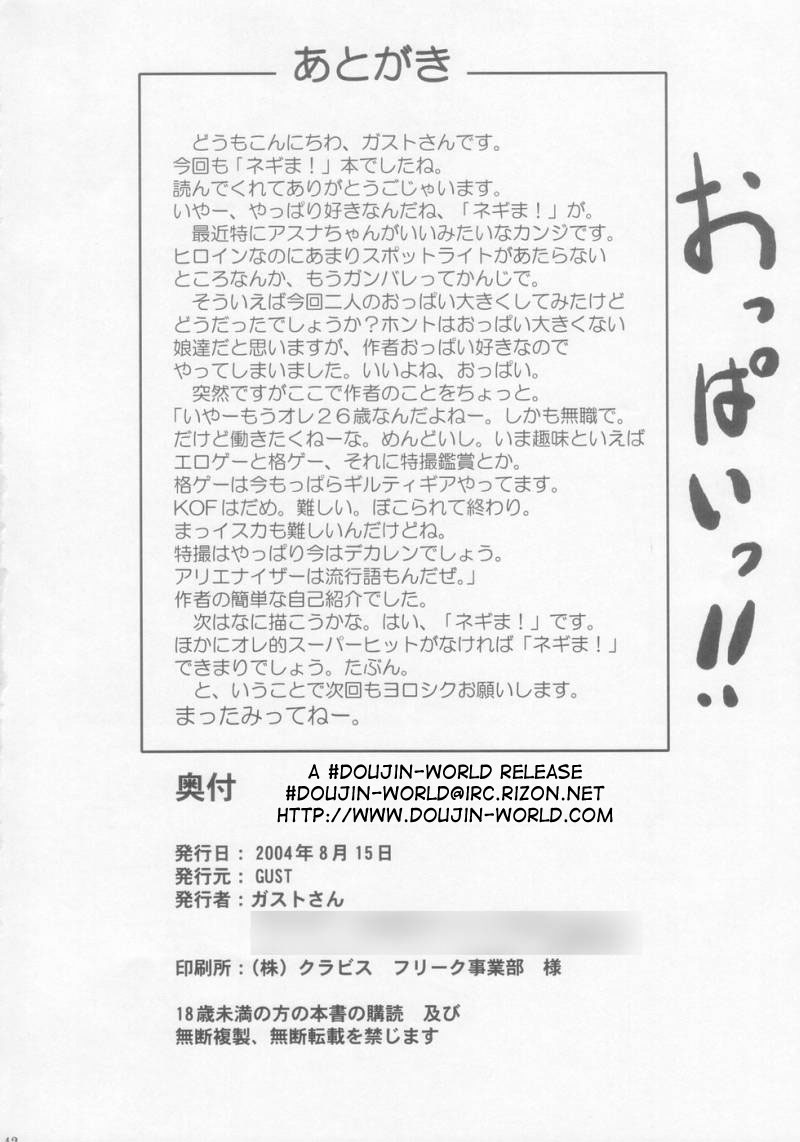 あとがき
どうもこんにちわ、ガストさんです。
今回も「ネギま！」本でしたね。
読んでくれてありがとうごじゃいます。
いやー、やっぱり好きなんだね、「ネギま！」が。
最近特にアスナちゃんがいいみたいなカンジです。
ヒロインなのにあまりスポットライトがあたらない
ところなんか、もうガンバレってかんじで。
そういえば今回二人のおっぱい大きくしてみたけど
どうだったでしょうか？ホントはおっぱい大きくない
娘達だと思いますが、作者おっぱい好きなので
やってしまいました。いいよね、おっぱい。
突然ですがここで作者のことをちょっと。
「いやーもうオレ２６歳なんだよねー。しかも無職で。
だけど働きたくねーな。めんどいし。いま趣味といえば
エロゲーと格ゲー、それに特撮鑑賞とか。
格ゲーは今もっぱらギルティギアやってます。
ＫＯＦはだめ。難しい。ぼこられて終わり。
まっイスカも難しいんだけどね。
特撮はやっぱり今はデカレンでしょう。
アリエナイザーは流行語もんだぜ。」
作者の簡単な自己紹介でした。
次はなに描こうかな。はい、「ネギま！」です。
ほかにオレ的スーパーヒットがなければ「ネギま！」
できまりでしょう。たぶん。
と、いうことで次回もヨロシクお願いします。
まったみってねー。
おっぱいっ!!
奥付
A #DOUJIN-WORLD RELEASE
#DOUJIN-WORLD@IRC.RIZON.NET
HTTP://WWW.DOUJIN-WORLD.COM
発行日：2004年8月15日
発行元：GUST
発行者：ガストさん
印刷所：（株）クラビス　フリーク事業部　様
18歳未満の方の本書の購読　及び
無断複製、無断転載を禁じます